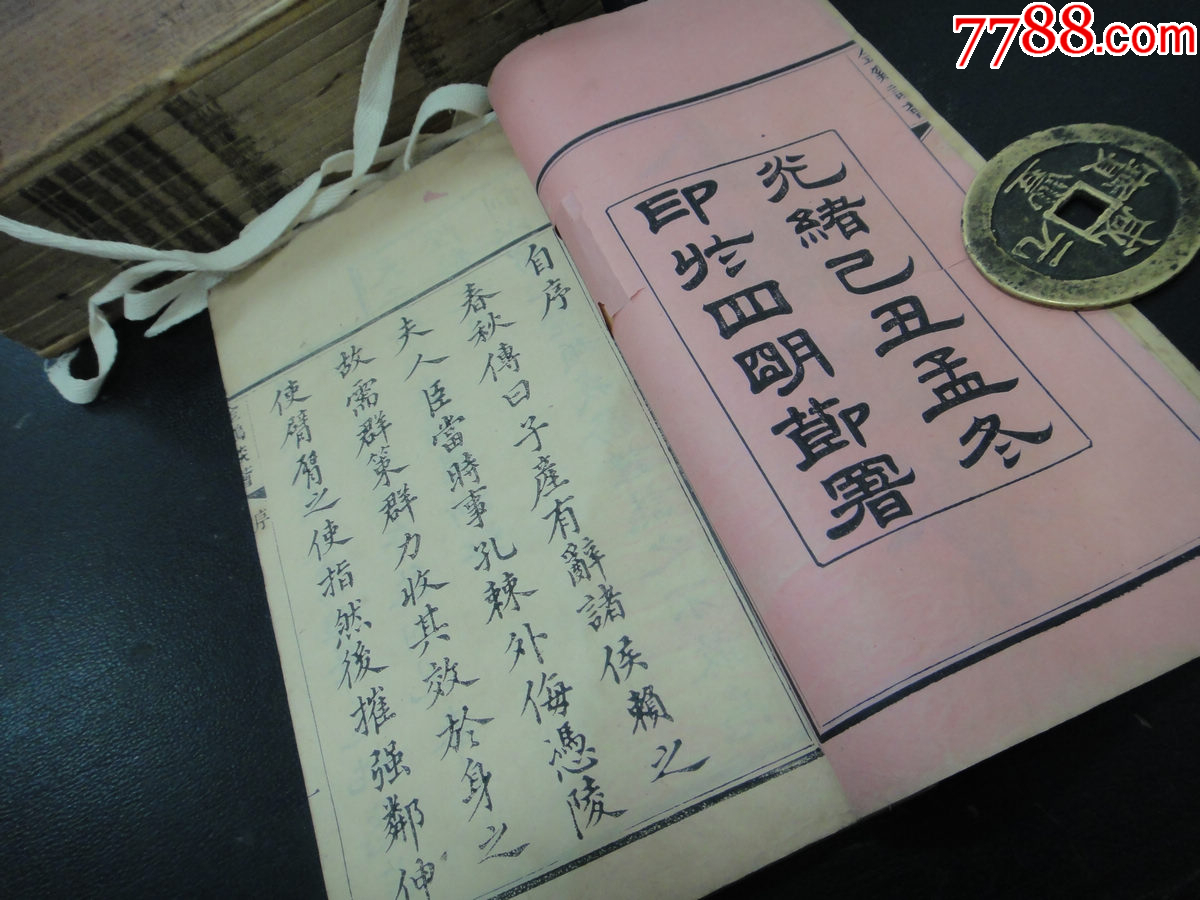 7788.com
光緒己丑孟冬
印於四明節署
自序
春秋傳曰子產有辭諸侯賴之
夫人臣當時事孔棘外侮憑陵
故需群策群力收其效於身之
使臂臂之使指然後摧强鄰伸
序
元寶